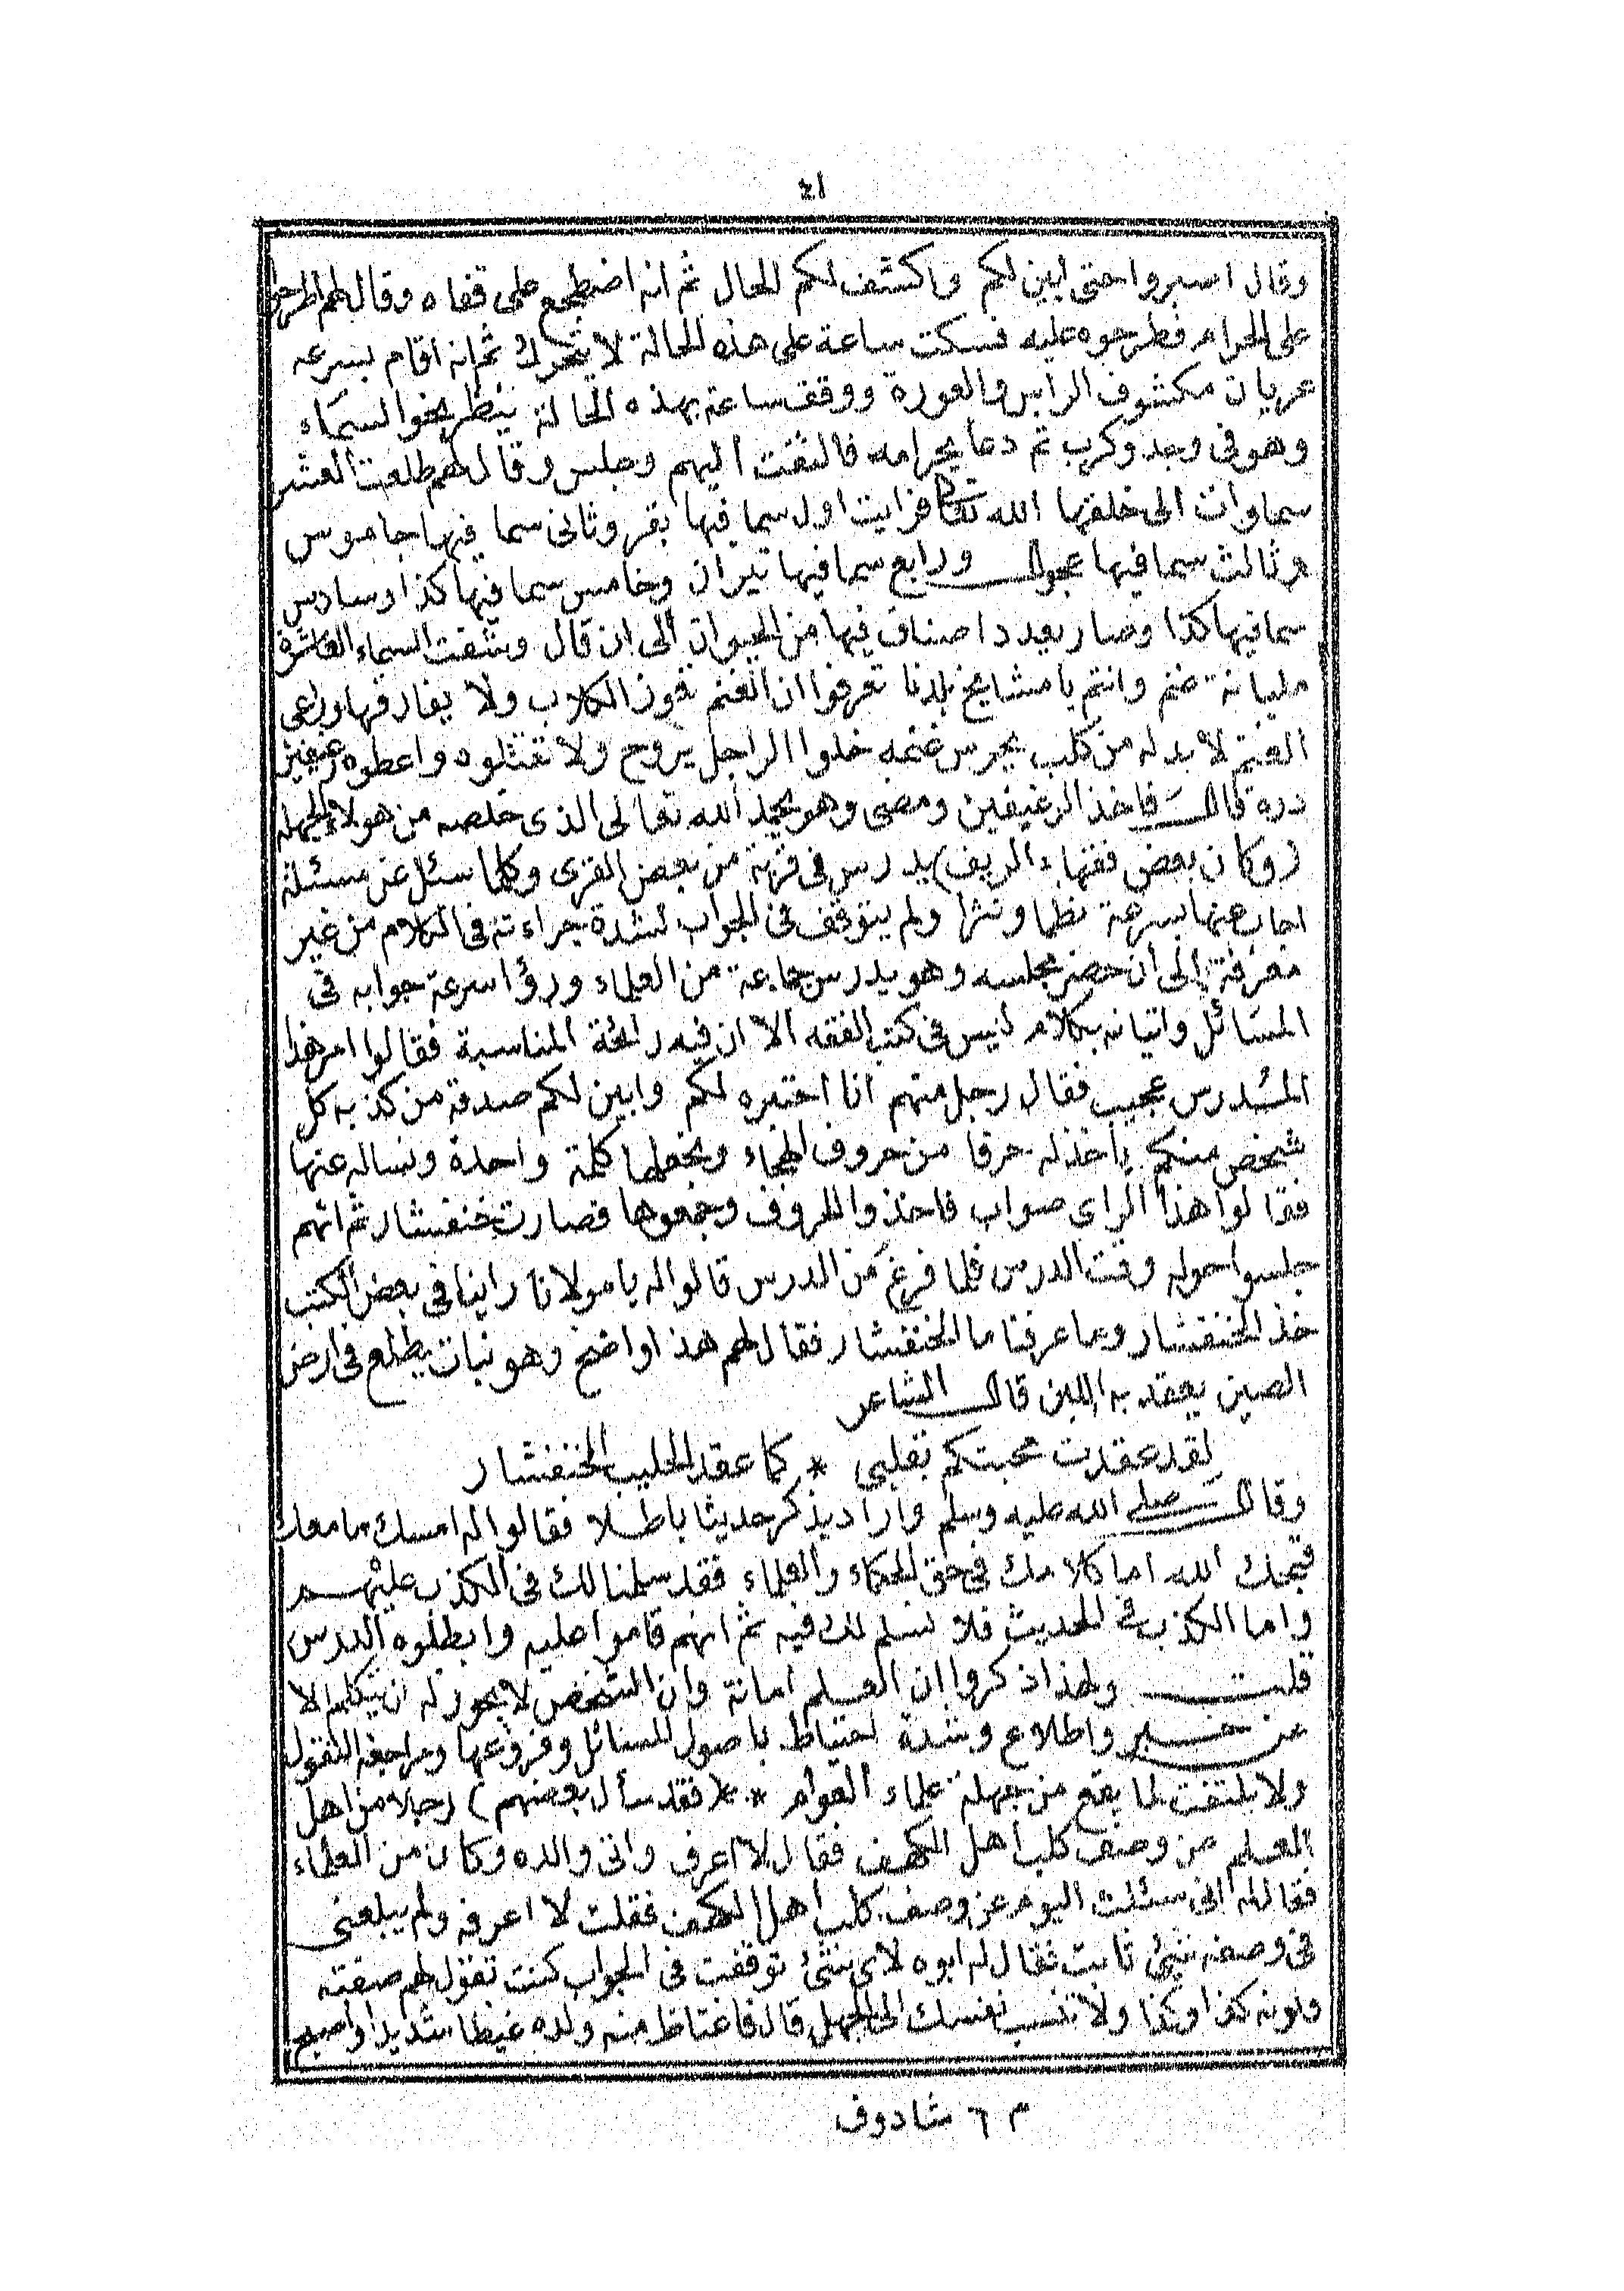 ٤١
وقال اصبروا حتى ابين لكم واكشف لكم الحال ثم انه اضطجع على قفاه وقال لهم اطرحوا
على الحرام فطرحوه عليه فسكت ساعة على هذه الحالة لا يتحرك ثم انه اقام بسرعه
عريان مكشوف الراس والعورة ووقف ساعة بهذه الحالة ينظر نحو السماء
وهو في وجد وكرب ثم دعا بحرامه فالتفت اليهم وجلس وقال لهم طلعت العشر
سماوات التي خلقها الله تعالى فرايت اول سما فيها بقر وثاني سما فيها جاموس
وثالث سما فيها عجول ورابع سما فيها تيران وخامس سما فيها كذا وسادس
سما فيها كذا وصار يعدد اصناف فيها من الحيوان الى ان قال وشفت السماء العاشرة
مليانة غنم وانتم يا مشايخ بلدنا تعرفوا ان الغنم تعوز الكلاب ولا يفارقها وراعي
الغنم لا بد له من كلب يحرس غنمه خلوا الراجل يروح ولا تقتلوه واعطوه رغيفين
دره قال فاخذ الرغيفين ومضى وهو يحمد الله تعالى الذى خلصه من هولاء الجهله
(وكان بعض فقهاء الريف) يدرس في قرية من بعض القرى وكلما سئل عن مسئلة
اجاب عنها بسرعة نظما ونثرا ولم يتوقف في الجواب لشدة جراءته في الكلام من غير
معرفة الى ان حضر مجلسه وهو يدرس جماعة من العلماء ورؤا سرعة جوابه في
المسائل واتيانه بكلام ليس في كتب الفقه الا ان فيه رائحة المناسبة فقالوا امر هذا
المدرس عجيب فقال رجل منهم انا اختبره لكم وابين لكم صدقه من كذبه كل
شخص منكم ياخذ له حرفا من حروف الهجاء ونجعلها كلمة واحدة ونساله عنها
فقالوا هذا الراى صواب فاخذوا الحروف وجمعوها فصارت خنفشار ثم انهم
جلسوا حوله وقت الدرس فلما فرغ من الدرس قالوا له يا مولانا راينا في بعض الكتب
خذ الخنفشار وما عرفنا ما الخنفشار فقال لهم هذا واضح وهو نبات يطلع في ارض
الصين يعقد به اللبن قال الشاعر
لقد عقدت محبتكم بقلبي * كما عقد الحليب الخنفشار
وقال صلى الله عليه وسلم واراد يذكر حديثا باطلا فقالوا له امسك ما معك
قبحك الله اما كلامك في حق الحكماء والعلماء فقد سلمنا لك في الكذب عليهم
واما الكذب في الحديث فلا نسلم لك فيه ثم انهم قاموا عليه وابطلوه الدرس
قلت ولهذا ذكروا ان العلم امانة وان الشخص لا يجوز له ان يتكلم الا
عن خبير واطلاع وشدة احتياط باصول المسائل وفروعها ومراجعة النقول
ولا يلتفت لما يقع من جهلة علماء العوام * * (فقد سأل بعضهم) رجلا من اهل
العلم عن وصف كلب اهل الكهف فقال لا اعرف واتى والده وكان من العلماء
فقال له انى سئلت اليوم عن وصف كلب اهل الكهف فقلت لا اعرفه ولم يبلغنى
في وصفه شئ ثابت فقال له ابوه لاى شئ توقفت في الجواب كنت تقول لهم صفته
ولونه كذا وكذا ولا تنسب نفسك الى الجهل قال فاغتاظ منه ولده غيظا شديدا واصبح
م ٦ شادوف